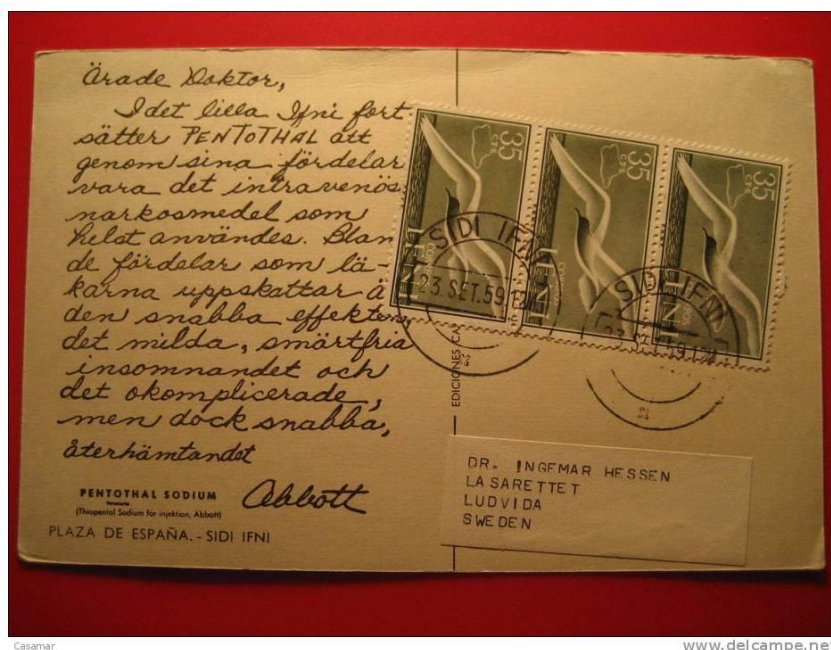 Ärade Doktor,
I det lilla Ifni fort
sätter PENTOTHAL att
genom sina fördelar
vara det intravenös
narkosmedel som
helst användes. Blan
de fördelar som lä-
karna uppskattar ä
den snabba effekten,
det milda, smärtfria
insomnandet och
det okomplicerade,
men dock snabba,
återhämtandet
PENTOTHAL SODIUM
(Thiopental Sodium för injektion, Abbott)
Abbott
PLAZA DE ESPAÑA. - SIDI IFNI
EDICIONES CA
35
CTS
IFNI
35
CTS
IFNI
35
CTS
IFNI
SIDI IFNI
23. SET. 59. 12
SIDI IFNI
DR. INGEMAR HESSEN
LASARETTET
LUDVIDA
SWEDEN
Casamar
www.delcampe.net